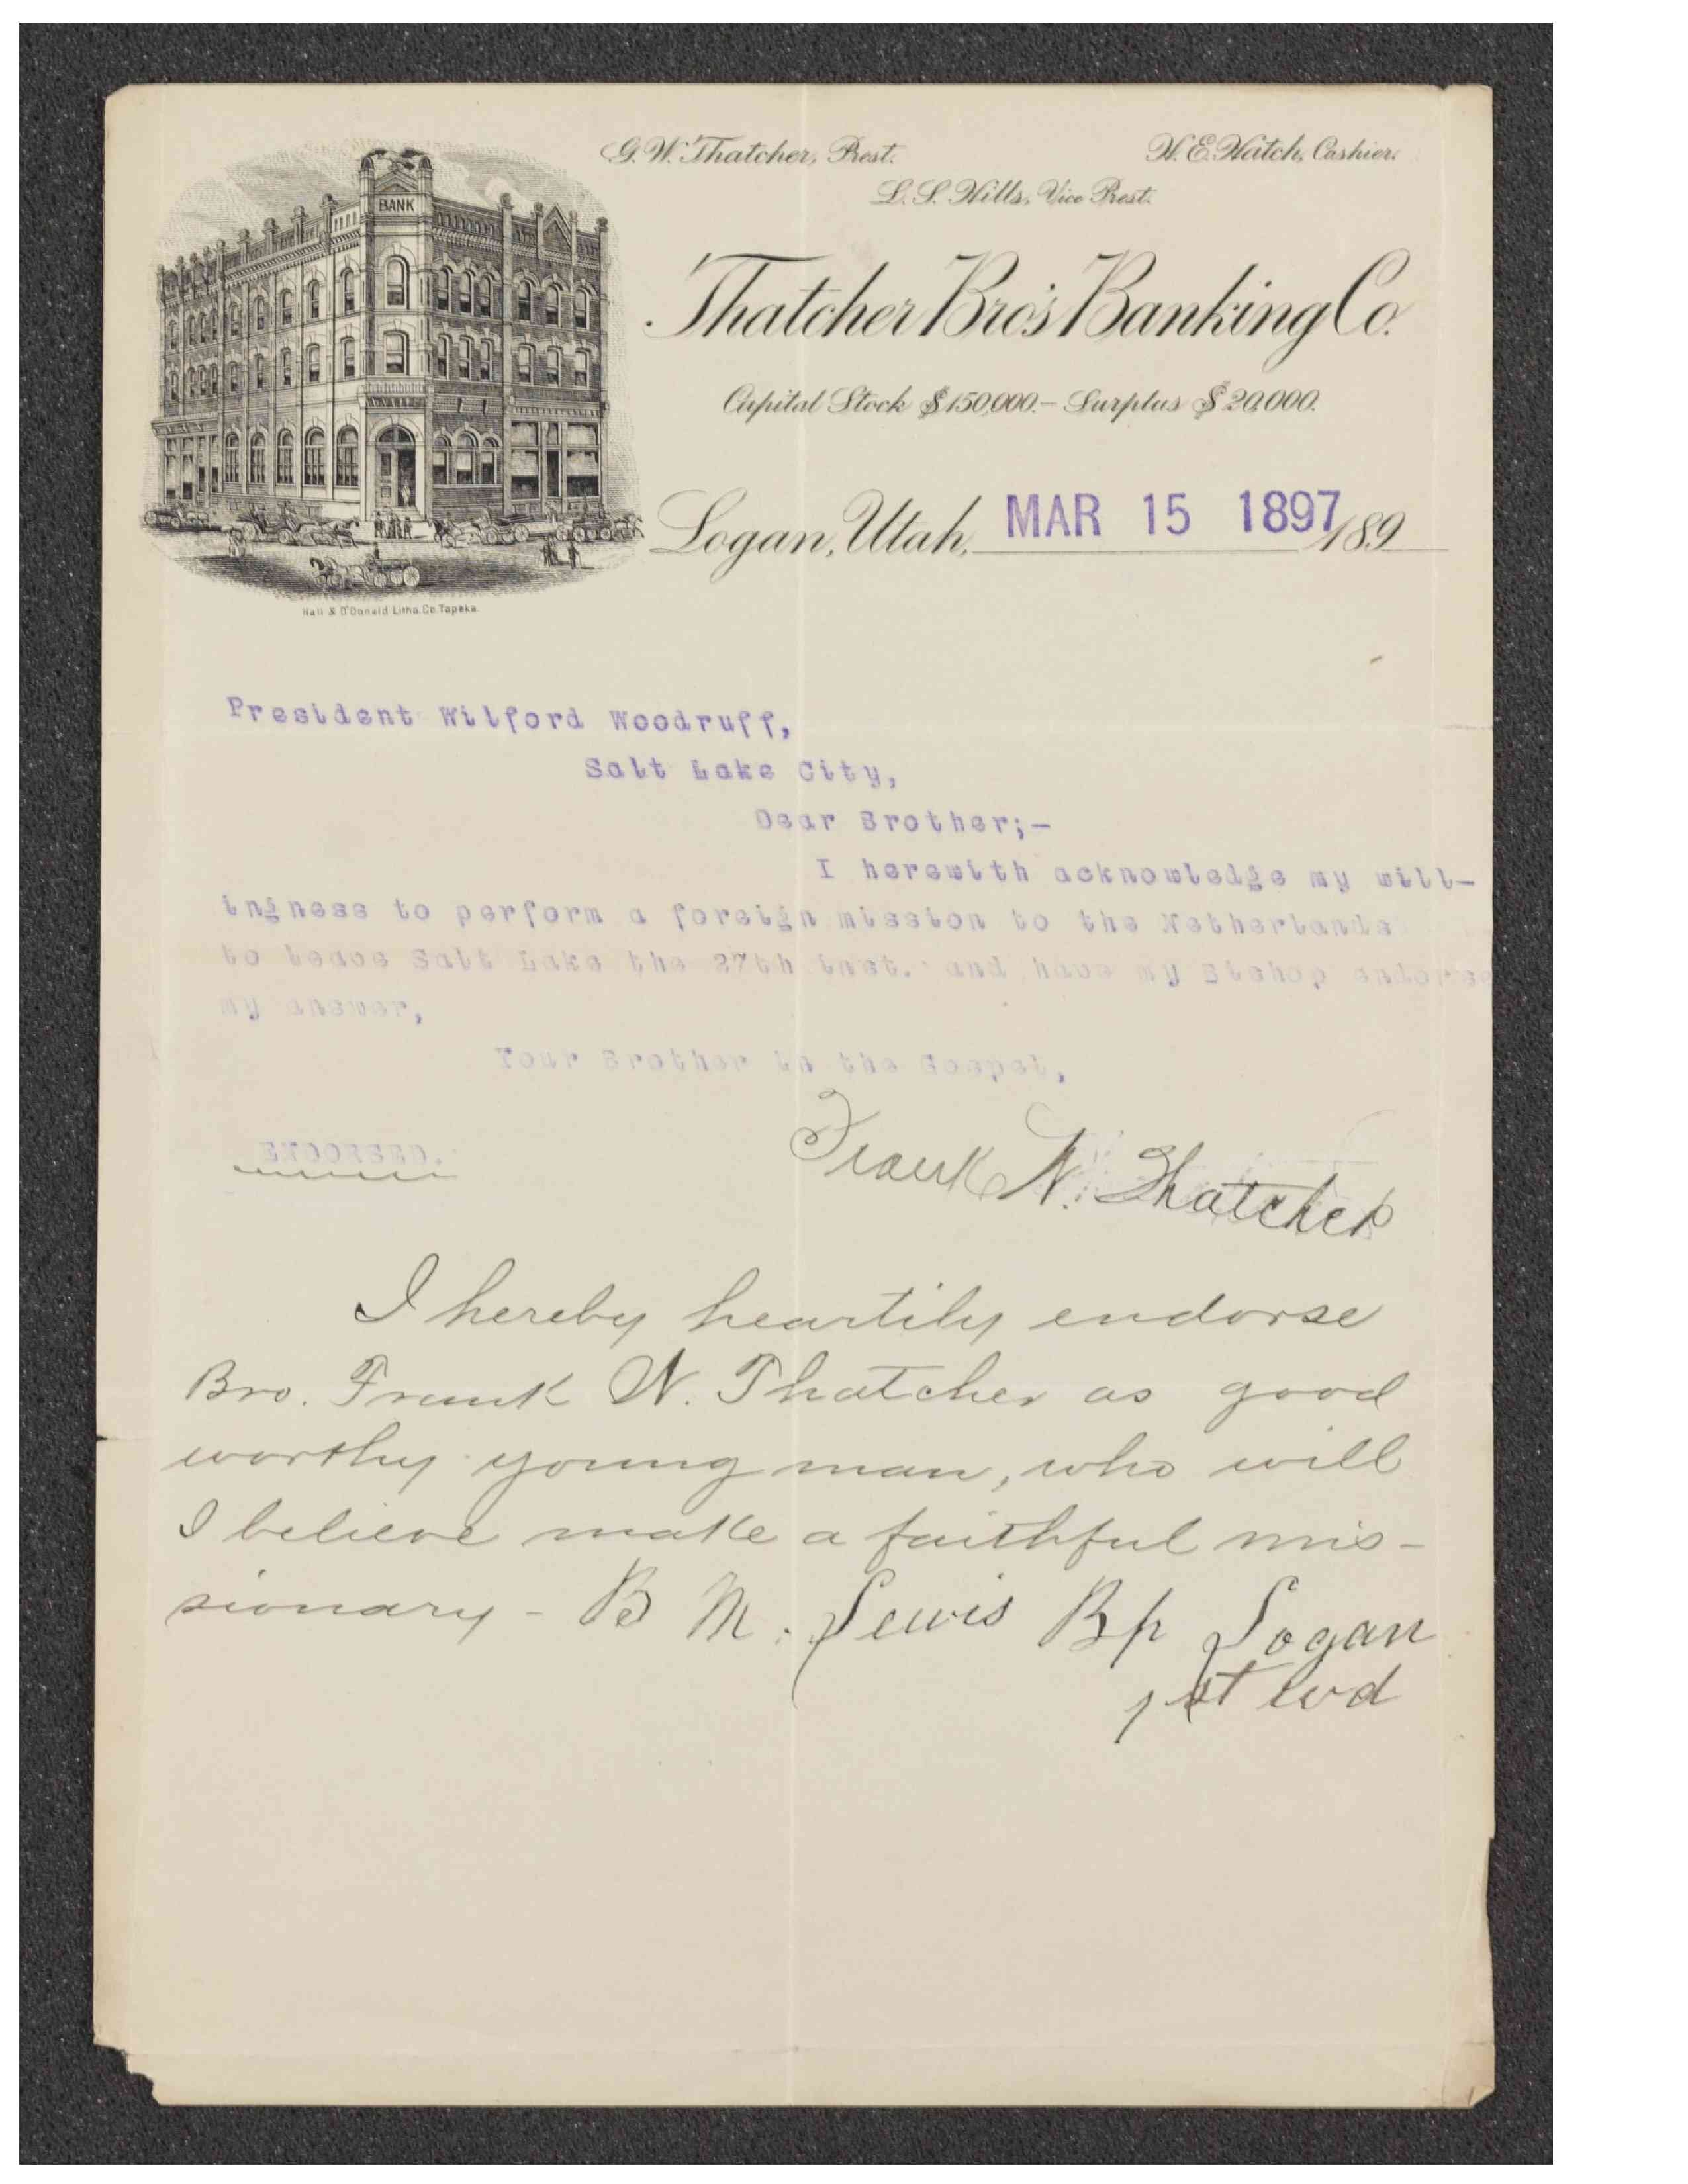 BANK
G. W. Thatcher, Prest.
W. E. Hatch, Cashier.
L. S. Hills, Vice Prest.
Thatcher Bro's Banking Co.
Capital Stock $150,000.- Surplus $20,000.
Logan, Utah, MAR 15 1897 189
Hall & O'Donald Litho. Co. Topeka.
President Wilford Woodruff,
Salt Lake City,
Dear Brother;-
I herewith acknowledge my will-
ingness to perform a foreign mission to the Netherlands
to leave Salt Lake the 27th inst. and have my Bishop endorse
my answer,
Your Brother in the Gospel,
Frank N. Thatcher
ENDORSED.
I hereby heartily endorse
Bro. Frank N. Thatcher as good
worthy young man, who will
I believe make a faithful mis-
sionary - B M. Lewis Bp Logan
1st wd